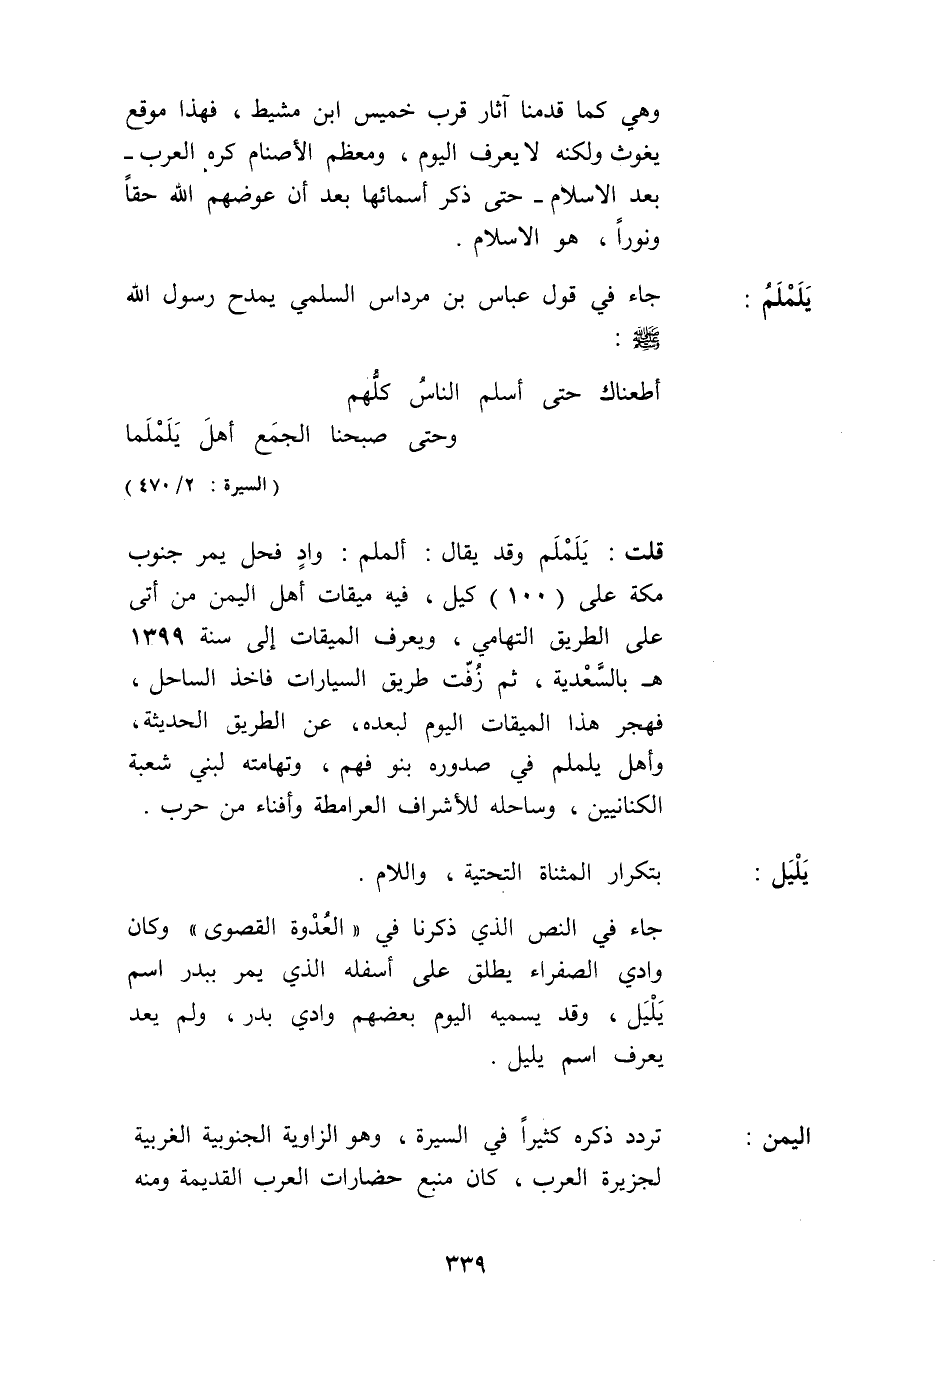 وهي كما قدمنا آثار قرب خميس ابن مشيط ، فهذا موقع
يغوث ولكنه لا يعرف اليوم ، ومعظم الأصنام كره العرب ـ
بعد الاسلام ـ حتى ذكر أسمائها بعد أن عوضهم الله حقاً
ونوراً ، هو الاسلام .
يَلَمْلَمُ : جاء في قول عباس بن مرداس السلمي يمدح رسول الله
ﷺ :
أطعناك حتى أسلم الناسُ كلُّهم
وحتى صبحنا الجمَع أهلَ يَلَمْلَما
( السيرة : ٢/ ٤٧٠ )
قلت : يَلَمْلَم وقد يقال : ألملم : وادٍ فحل يمر جنوب
مكة على ( ١٠٠ ) كيل ، فيه ميقات أهل اليمن من أتى
على الطريق التهامي ، ويعرف الميقات إلى سنة ١٣٩٩
هـ بالسَّعْدية ، ثم زُفّت طريق السيارات فاخذ الساحل ،
فهجر هذا الميقات اليوم لبعده، عن الطريق الحديثة،
وأهل يلملم في صدوره بنو فهم ، وتهامته لبني شعبة
الكنانيين ، وساحله للأشراف العرامطة وأفناء من حرب .
يَلْيَل : بتكرار المثناة التحتية ، واللام .
جاء في النص الذي ذكرنا في « العُذْوة القصوى» وكان
وادي الصفراء يطلق على أسفله الذي يمر ببدر اسم
يَلْيَل ، وقد يسميه اليوم بعضهم وادي بدر ، ولم يعد
يعرف اسم يليل .
اليمن : تردد ذكره كثيراً في السيرة ، وهو الزاوية الجنوبية الغربية
لجزيرة العرب ، كان منبع حضارات العرب القديمة ومنه
٣٣٩